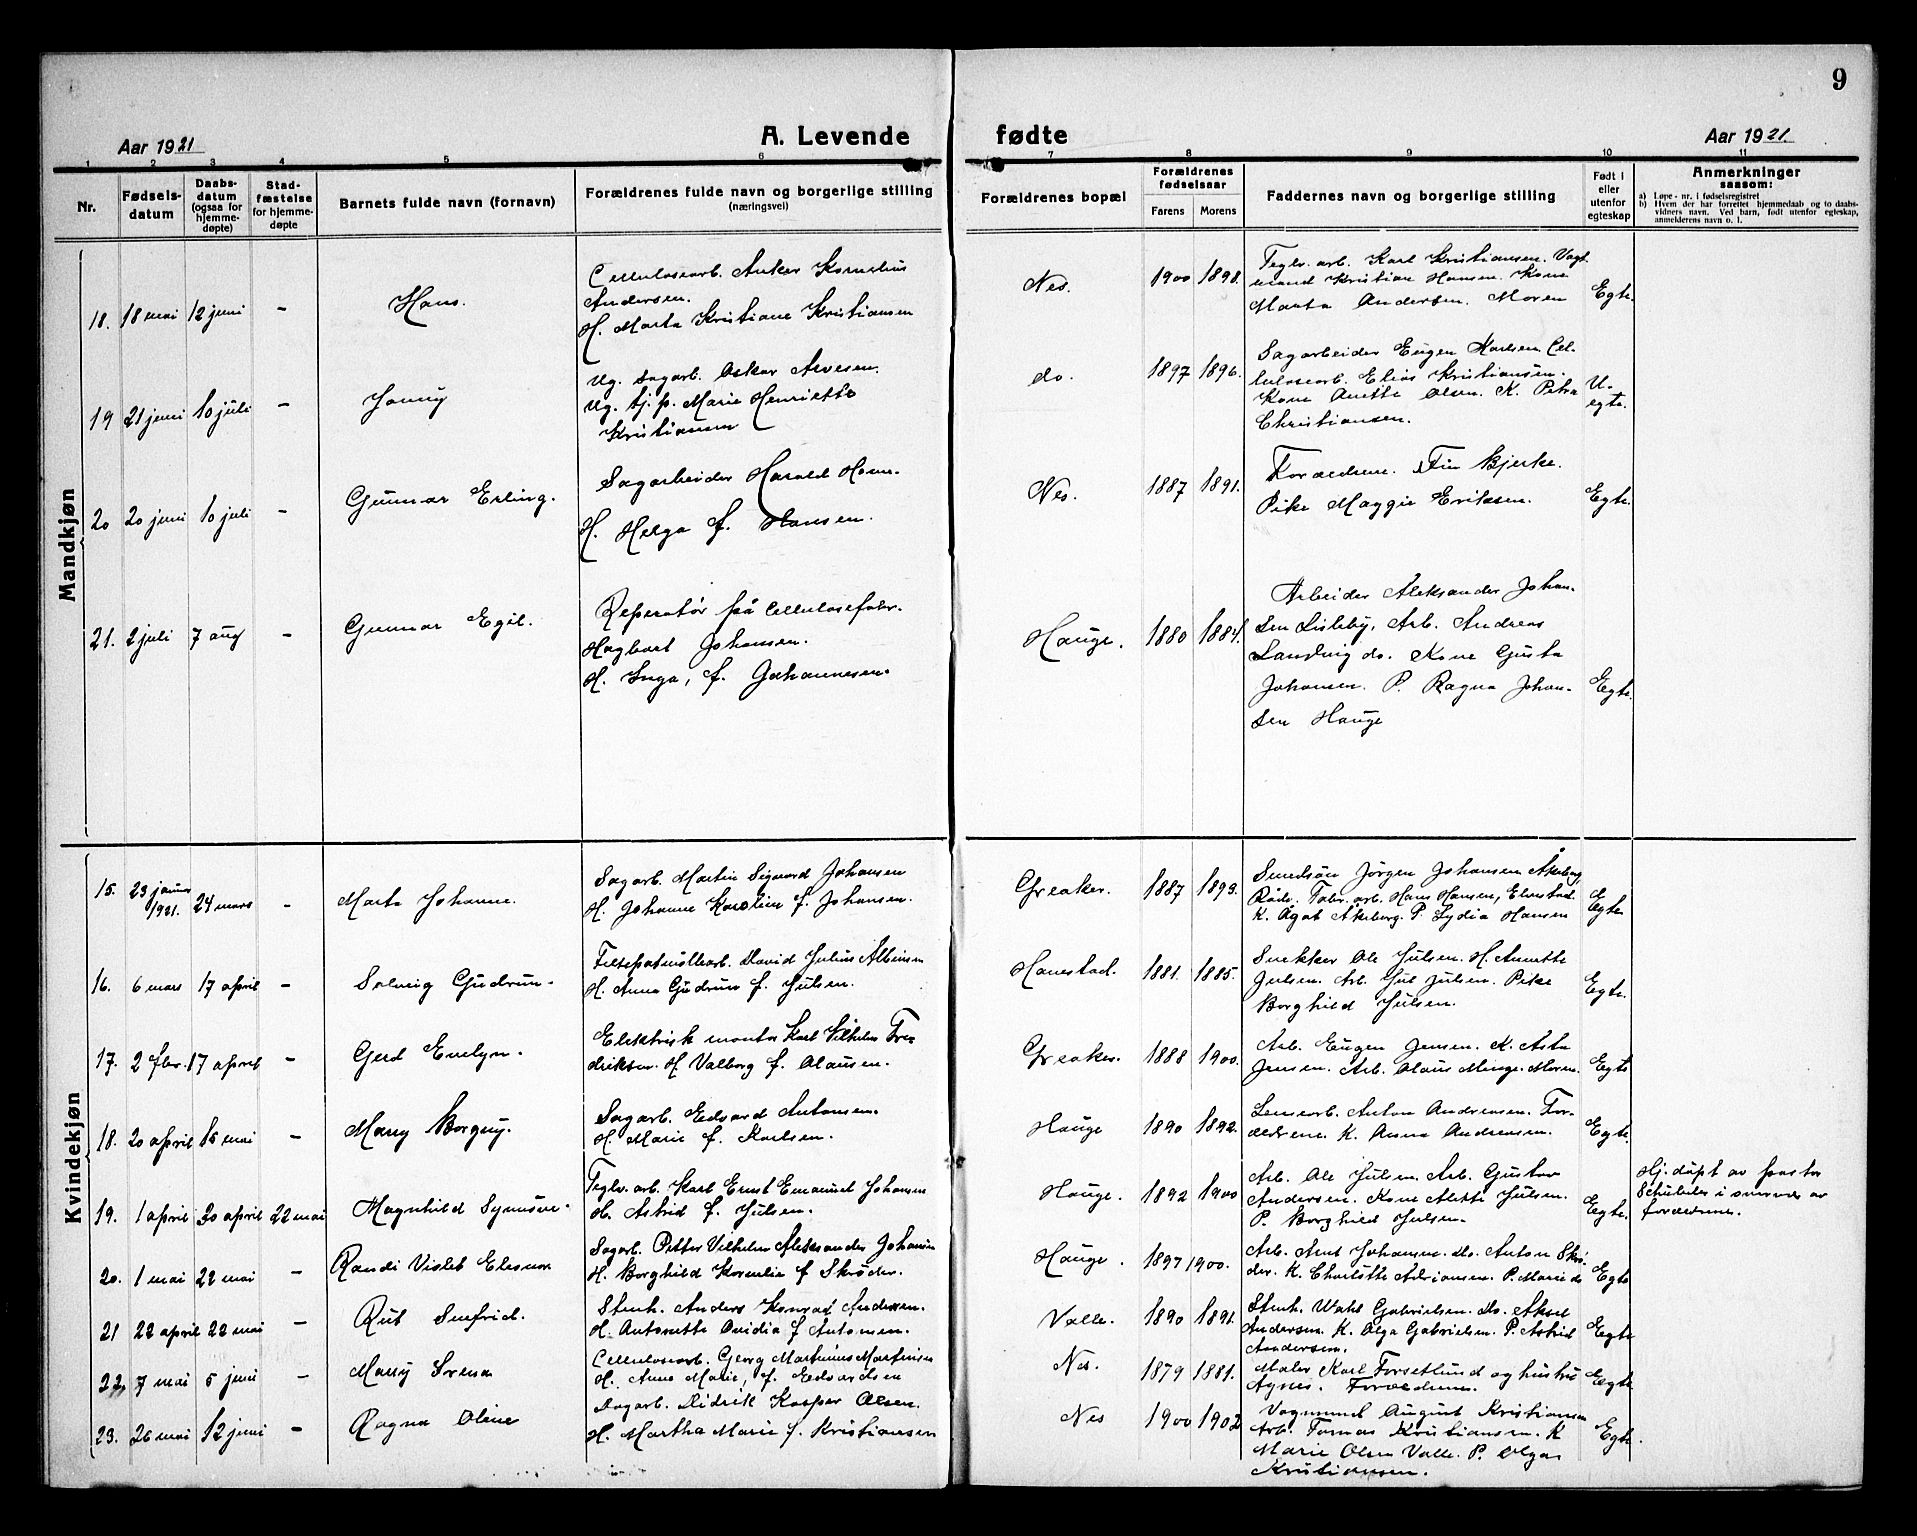 9
Aar 1921
A. Levende
fødte
Aar 1921.
1 2 3 4 5 6 7 8 9 10 11
Nr.
Fødsels-
datum
Daabs-
datum
(ogsaa for
hjemme-
døpte)
Stad-
fæstelse
for hjemme-
døpte
Barnets fulde navn (fornavn)
Forældrenes fulde navn og borgerlige stilling
(næringsvei)
Forældrenes bopæl
Forældrenes
fødselsaar
Farens Morens
Faddernes navn og borgerlige stilling
Født i
eller
utenfor
egteskap
Anmerkninger
saasom:
a) Løpe-nr. i fødselsregistret
b) Hvem der har forrettet hjemmedaab og to daabs-
vidners navn. Ved barn, født utenfor egteskap,
anmelderens navn o. l.
Mandkjøn
18. 18 mai 12 juni - Hans.
Cellulosearb. Anker Kornelius
Andersen.
H. Marta Kristiane Kristiansen
Nes. 1900 1898.
Teglv. arb. Karl Kristiansen. Vagt
mand Kristian Hansen. Kone
Marta Andersen. Moren
Egte.
19 21 juni 10 juli - Jonny
Ug. sagarb. Oskar Arvesen.
Ug. tj. p. Marie Henriette
Kristiansen
do. 1897 1896.
Sagarbeider Eugen Karlsen. Cel-
lulosearb. Elias Kristiansen.
Kone Anette Olsen. K. Petra
Christiansen.
U-
egte.
20 20 juni 10 juli - Gunnar Erling.
Sagarbeider Harald Horn.
H. Helga f. Hansen.
Nes. 1887 1891.
Forældrene. Fin Bjerke.
Pike Maggie Eriksen.
Egte.
21. 2 juli 7 aug - Gunnar Egil.
Reperatør på Cellulosefabr.
Hagbart Johansen.
H. Inga, f. Johannesen.
Hauge. 1880 1884.
Arbeider Aleksander Johan-
sen Lisleby, Arb. Andreas
Landvig do. Kone Gusta
Johansen. P. Ragna Johan-
sen Hauge
Egte.
Kvindekjøn
15. 23 januar 1921. 24 mars - Marta Johanne.
Sagarb. Martin Sigvard Johansen
H. Johanne Karoline f. Johansen.
Greaker. 1887 1893.
Jørgen Johansen Åkeberg,
Råde. Fabr. arb. Hans Hansen,
K. Ågot Åkeberg. P. Lydia Hansen
Egte
16. 6 mars 17 april - Solveig Gudrun.
David Julius Albinsen
H. Anna Gudrun f. Julsen.
Hanestad. 1881. 1885.
Snekker Ole Julsen. H. Annette
Julsen. Arb. Julsen. Pike
Borghild Julsen.
Egte.
17. 2 fbr. 17 april - Gerd Evelyn.
Elektrisk montør Karl Vilhelm Fre
driksen. H. Valborg f. Olausen.
Greaker. 1888 1900.
Arb. Eugen Jensen. K. Asta
Jensen. Arb. Olaus Minge. Moren.
Egte
18. 20 april 15 mai - Mary Borgny.
Sagarb. Edvard Antonsen.
H. Marie f. Karlsen.
Hauge 1890 1892.
Lensearb. Anton Andreasen. For-
ældrene. K. Anna Andreasen.
Egte.
19. 1 april 30 april 22 mai Magnhild Synnøve.
Teglv. arb. Karl Ernst Emanuel Johansen
H. Astrid f. Julsen.
Hauge. 1892 1900
Arb. Ole Julsen. Arb. Gustav
Andersen. Kone Alette Julsen.
P. Borghild Julsen.
Egte.
Hj. døpt av pastor
i nærvær av
forældrene.
20. 1 mai 22 mai - Randi Violet Elesnor
Sagarb. Petter Vilhelm Aleksander Johansen
H. Borghild Kornelie f Skrøder.
Hauge. 1897 1900.
Arb. Arnt Johansen. do. Anton Skrø-
der. K. Charlotte Adriansen. P. Marie do
Egte
21 22 april 22 mai - Rut Senfrid.
Stenh. Anders Konrad Andersen.
H. Antonette Ovidia f Antonsen.
Valle. 1890 1891.
Stenh. Wahl Gabrielsen. Do. Aksel
Andersen. K. Olga Gabrielsen. P. Astrid
Andersen.
Egte
22. 7 mai 5 juni - Mary Irena
Celluloseearb. Georg Martinius Martinsen
H. Anne Marie, f. Edvardsen
Nes. 1879 1881.
Maler Karl Forsetlund og hustru
Agnes. Forældrene.
Egte.
23. 26 mai 12 juni - Ragna Oline
Sagarb. Didrik Kasper Olsen.
H. Martha Marie f. Kristiansen
Nes 1900 1902
Vognmand August Kristiansen
Arb. Tomas Kristiansen. K
Marie Olsen Valle. P. Olga
Kristiansen.
Egte.